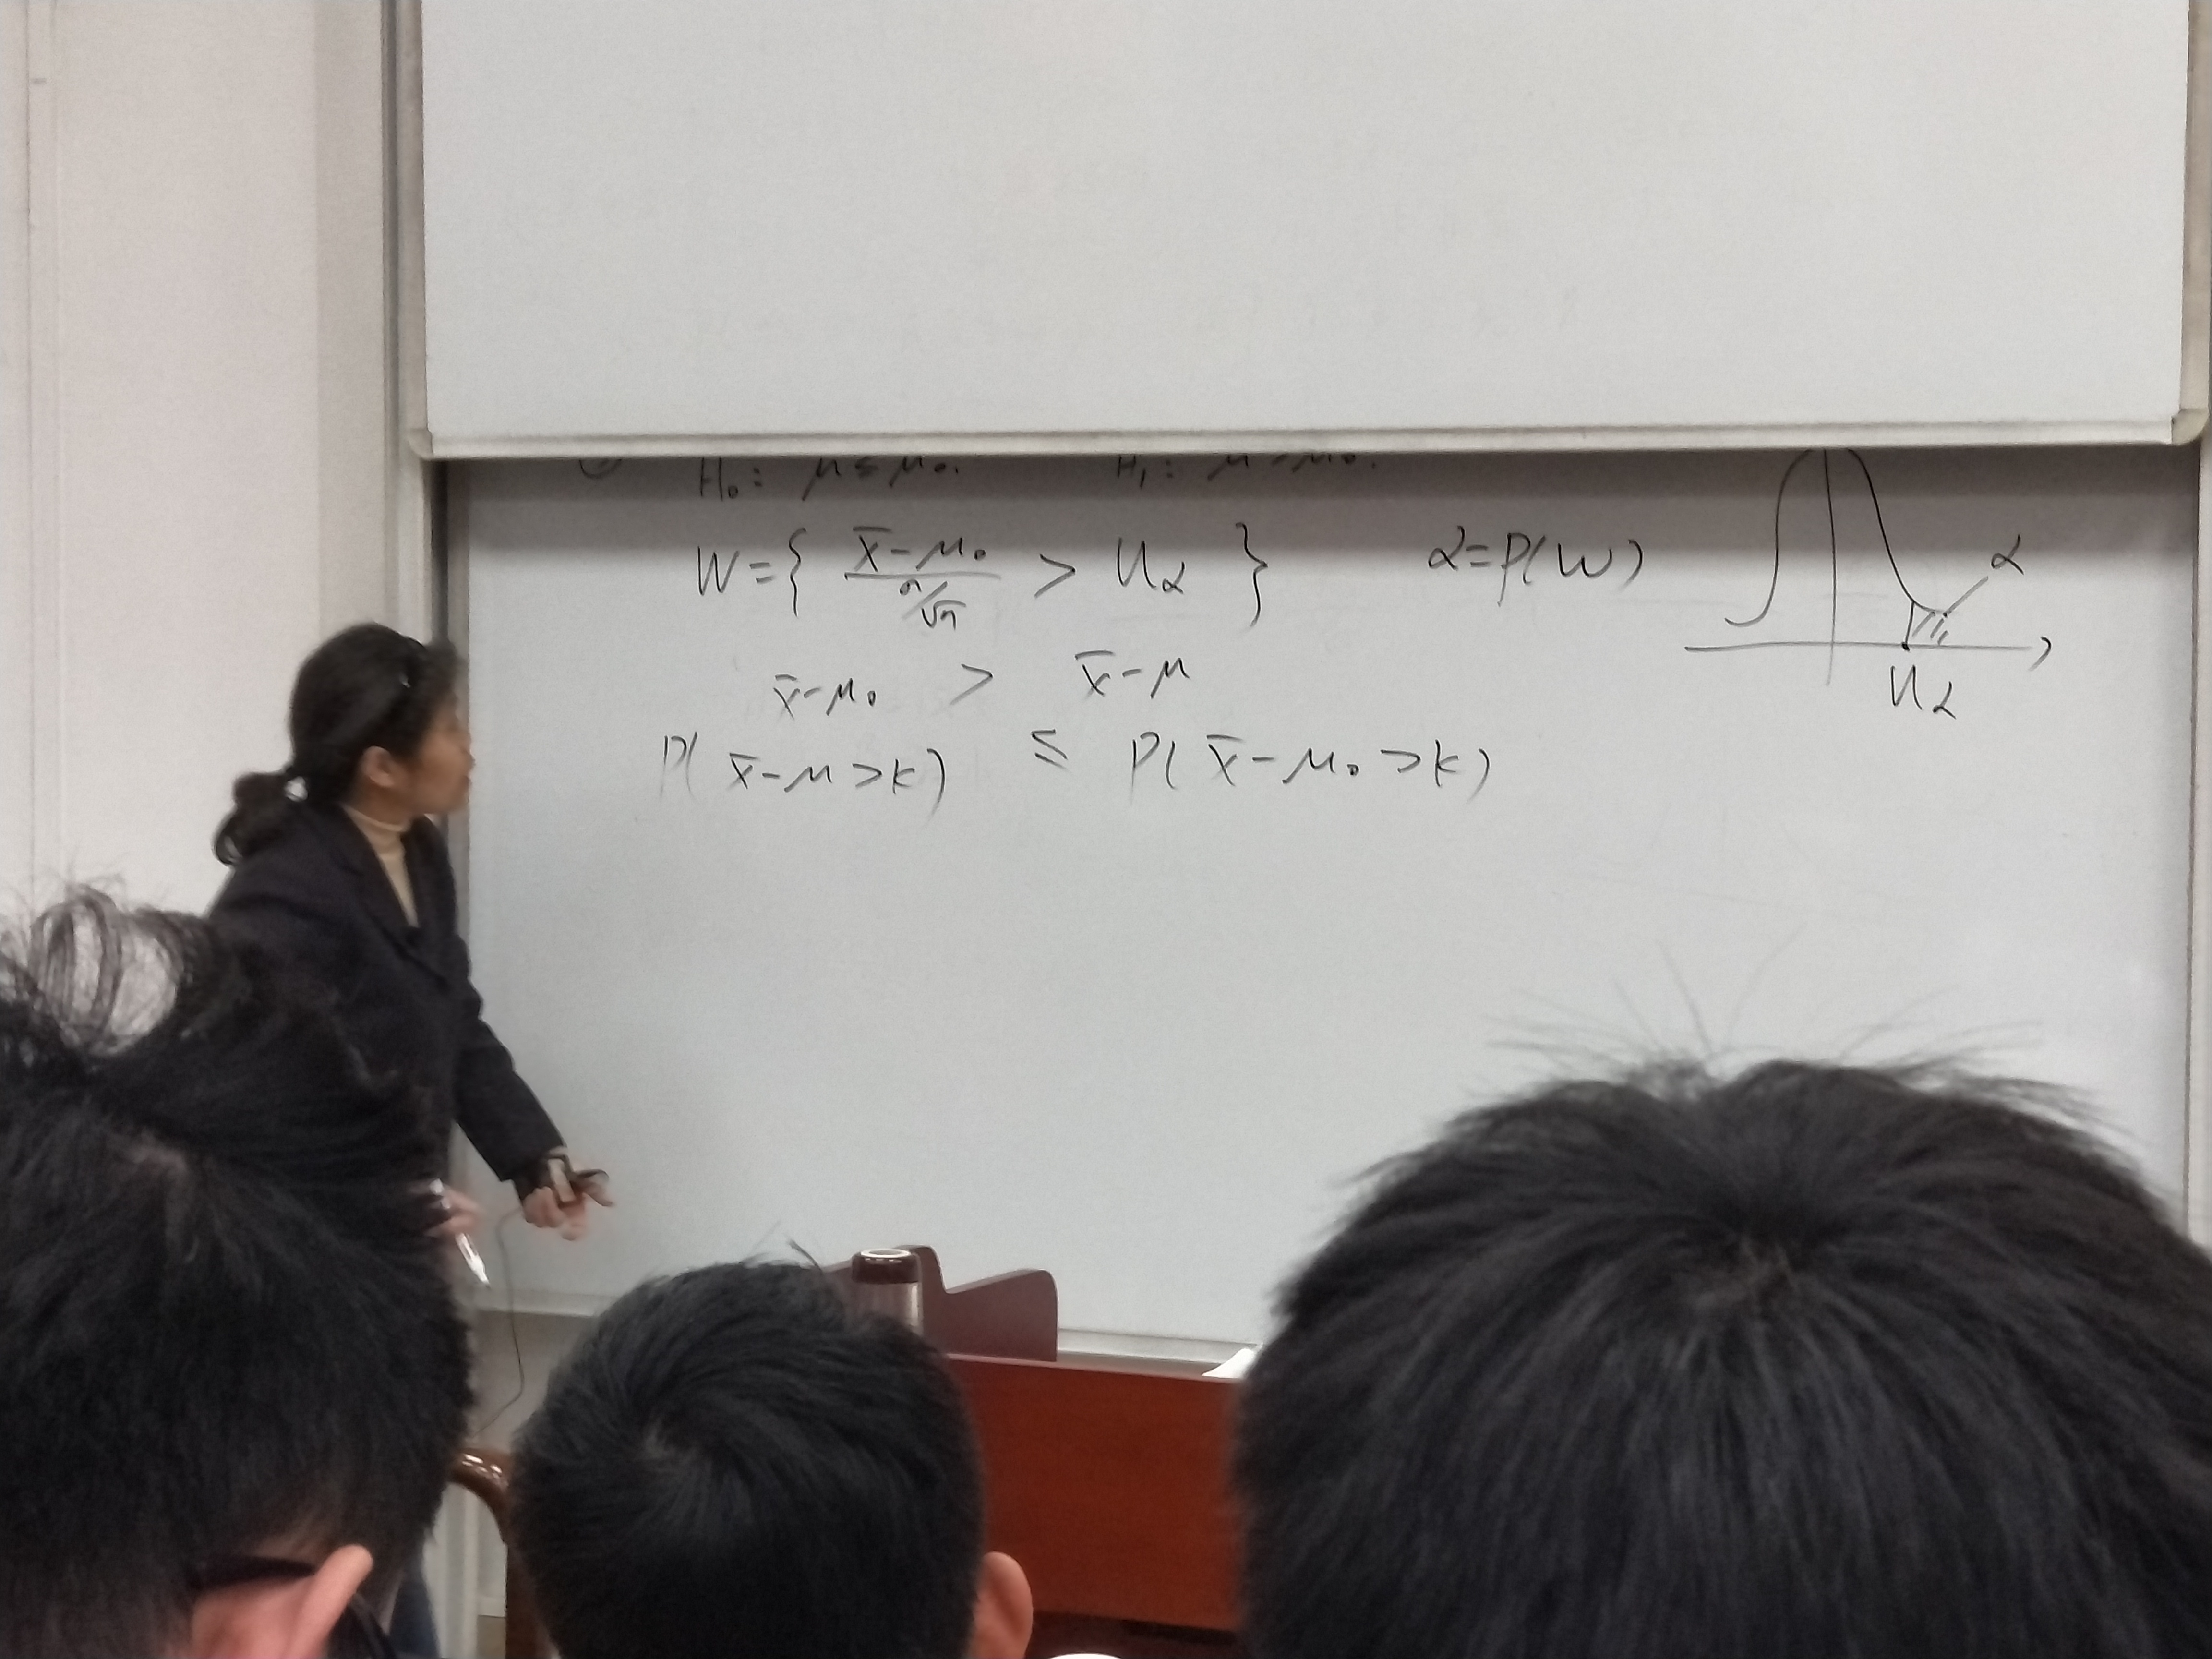 H₀: μ ≤ μ₀. H₁: μ > μ₀.
W = { (x̄ - μ₀) / (σ/√n) > u_α } α = P(W) α
x̄ - μ₀ > x̄ - μ
u_α
P( x̄ - μ > k ) ≤ P( x̄ - μ₀ > k )